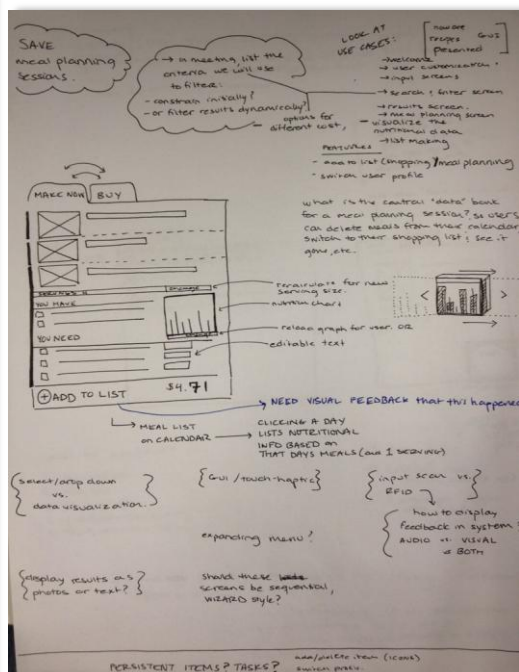 SAVE
meal planning
sessions.
→ in meeting, list the
criteria we will use
to filter:
- constrain initially?
- or filter results dynamically?
- options for
different cost,
LOOK AT
USE CASES:
how are
recipes
presented
GUIS
→ welcome
→ user customization
→ input screens
→ search & filter screen
→ results screen.
→ meal planning screen
- visualize the
nutritional data
→ list making
FEATURES
- add to list (shopping / meal planning
- switch user profile
what is the central 'data' bank
for a meal planning session?, so users
can delete meals from their calendar
switch to their shopping list & see it
gone, etc.
MAKE NOW
BUY
YOU HAVE
YOU NEED
recalculate for new
serving size.
nutrition chart
reload graph for user. OR
editable text
< >
+ ADD TO LIST
$4.71
→ NEED VISUAL FEEDBACK that this happened
→ MEAL LIST
on CALENDAR →
CLICKING A DAY
LISTS NUTRITIONAL
INFO BASED on
THAT DAYS MEALS (aka 1 SERVING)
{select/drop down
vs.
data visualization..}
{GUI / touch-haptic}
{input scan vs.
RFID}
{how to display
feedback in system?
AUDIO vs. VISUAL
or BOTH
expanding menu?
{display results as
photos or text?}
should these
screens be sequential,
WIZARD style?
PERSISTENT ITEMS? TASKS?
add/delete item (icons)
switch